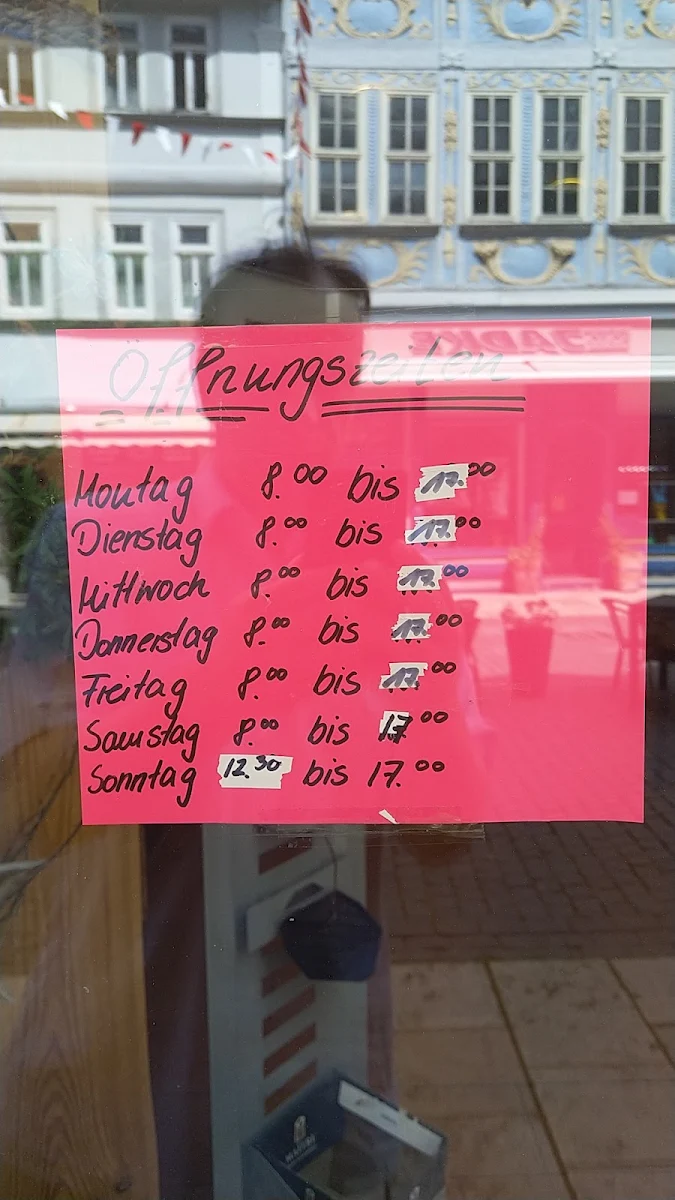 Öffnungszeiten
Montag 8.00 bis 17.00
Dienstag 8.00 bis 17.00
Mittwoch 8.00 bis 17.00
Donnerstag 8.00 bis 17.00
Freitag 8.00 bis 17.00
Samstag 8.00 bis 17.00
Sonntag 12.30 bis 17.00